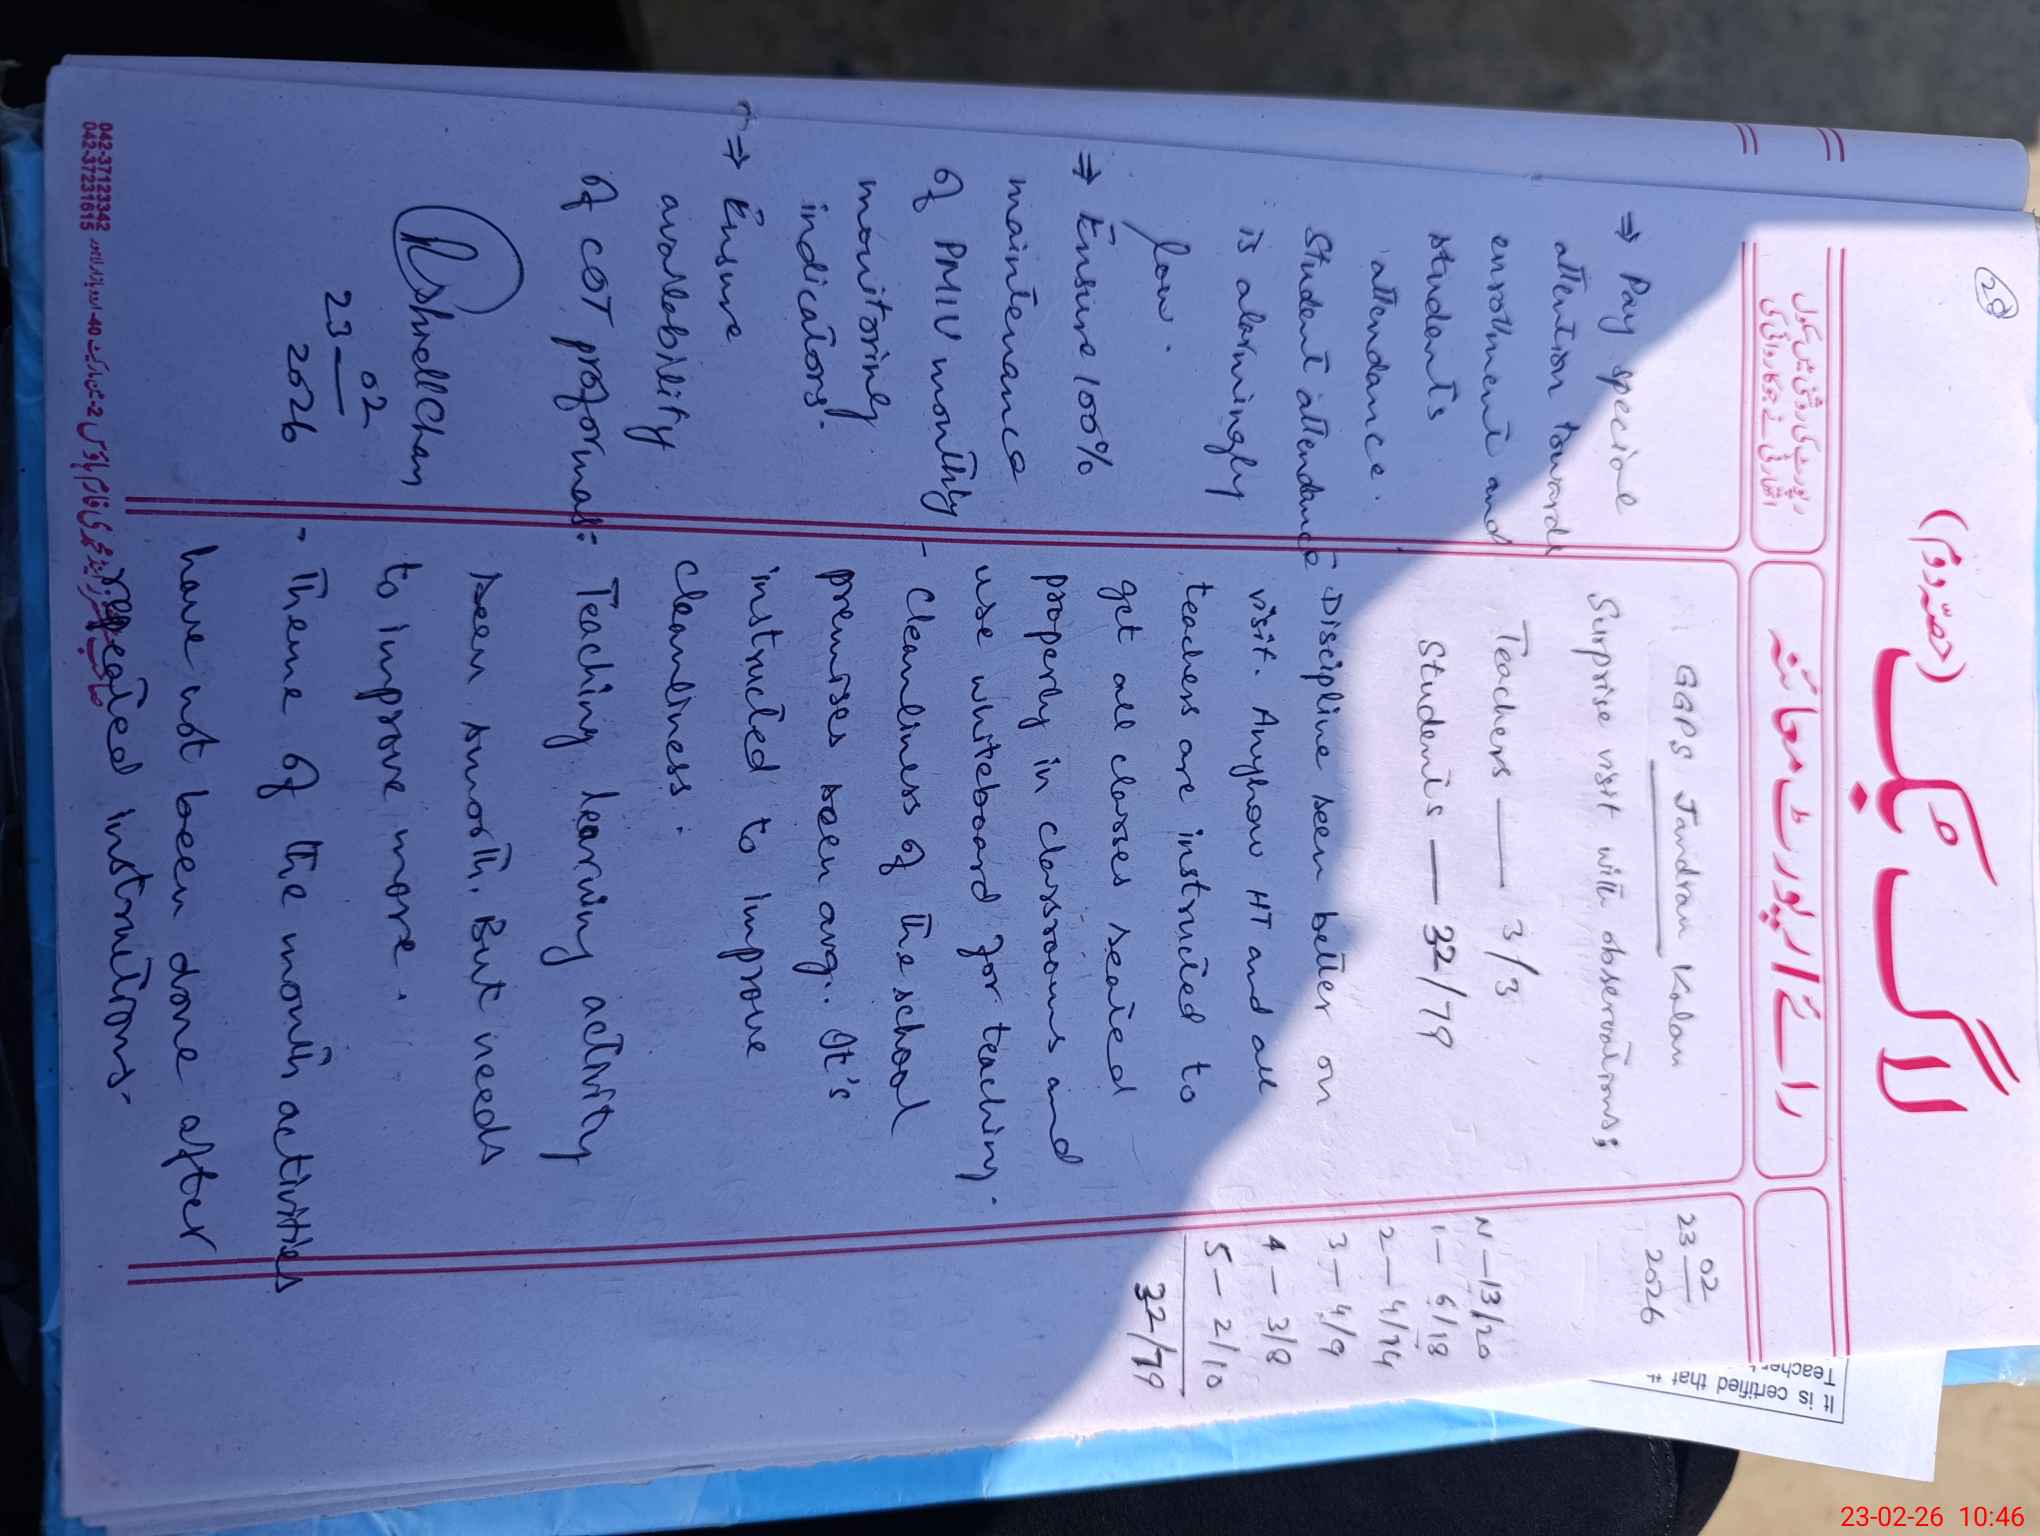 28
لاگ بک
(حصہ دوم)
رائے / رپورٹ معائنہ
23 02 2026
N – 13/20
1 – 6/18
2 – 4/14
3 – 4/9
4 – 3/8
5 – 2/10
32/79
GGPS Jandran Kalan
Surprise visit with observations;
Teachers — 3/3
Students — 32/79
- Discipline seen better on
visit. Anyhow HT and all
teachers are instructed to
get all classes seated
properly in classrooms and
use whiteboard for teaching.
- Cleanliness of the school
premises seen avg. It's
instructed to improve
cleanliness.
- Teaching learning activity
seen smooth. But needs
to improve more.
- Theme of the month activities
have not been done after
repeated instructions.
⇒ Pay special
attention towards
enrollment and
students
attendance.
Student attendance
is alarmingly
low.
⇒ Ensure 100%
maintenance
of PMIU monthly
monitoring
indicators.
⇒ Ensure
availability
of COT proformas.
23 02 2026
042-37123342
042-37231615
It is certified that
Teacher
23-02-26 10:46